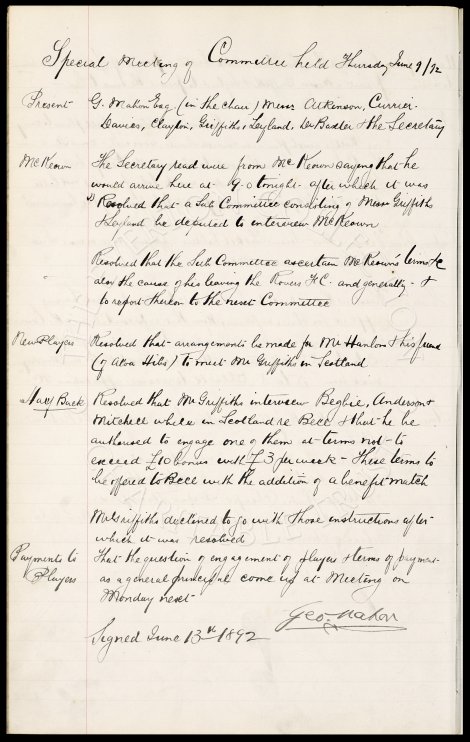 Special Meeting of Committee held Thursday June 9/92
Present G. Mahon Esq (in the chair) Messrs Atkinson, Currier.
Davies, Clayton, Griffiths, Leyland, Dr Baxter & the Secretary
McKeown The Secretary read wire from McKeown saying that he
would arrive here at 9.0 tonight after which it was
Resolved that a Sub Committee consisting of Messrs Griffiths
& Leyland be deputed to interview McKeown
" Resolved that the Sub Committee ascertain McKeown's terms &c
also the cause of his leaving the Rovers F.C. and generally - &
to report thereon to the next Committee
New Players Resolved that arrangements be made for Mr Hanlon & his friend
(of Alva Hibs) to meet Mr Griffiths in Scotland
Half Back Resolved that Mr Griffiths interview Begbie, Anderson &
Mitchell whilst in Scotland re Bell & that he be
authorised to engage one of them at terms not to
exceed £10 bonus with £3 per week - These terms to
be offered to Bell with the addition of a benefit match
Mr Griffiths declined to go with those instructions after
which it was resolved
Payments to That the question of engagement of players & terms of payment
Players as a general principal come up at Meeting on
Monday next
Geo. Mahon
Signed June 13th 1892